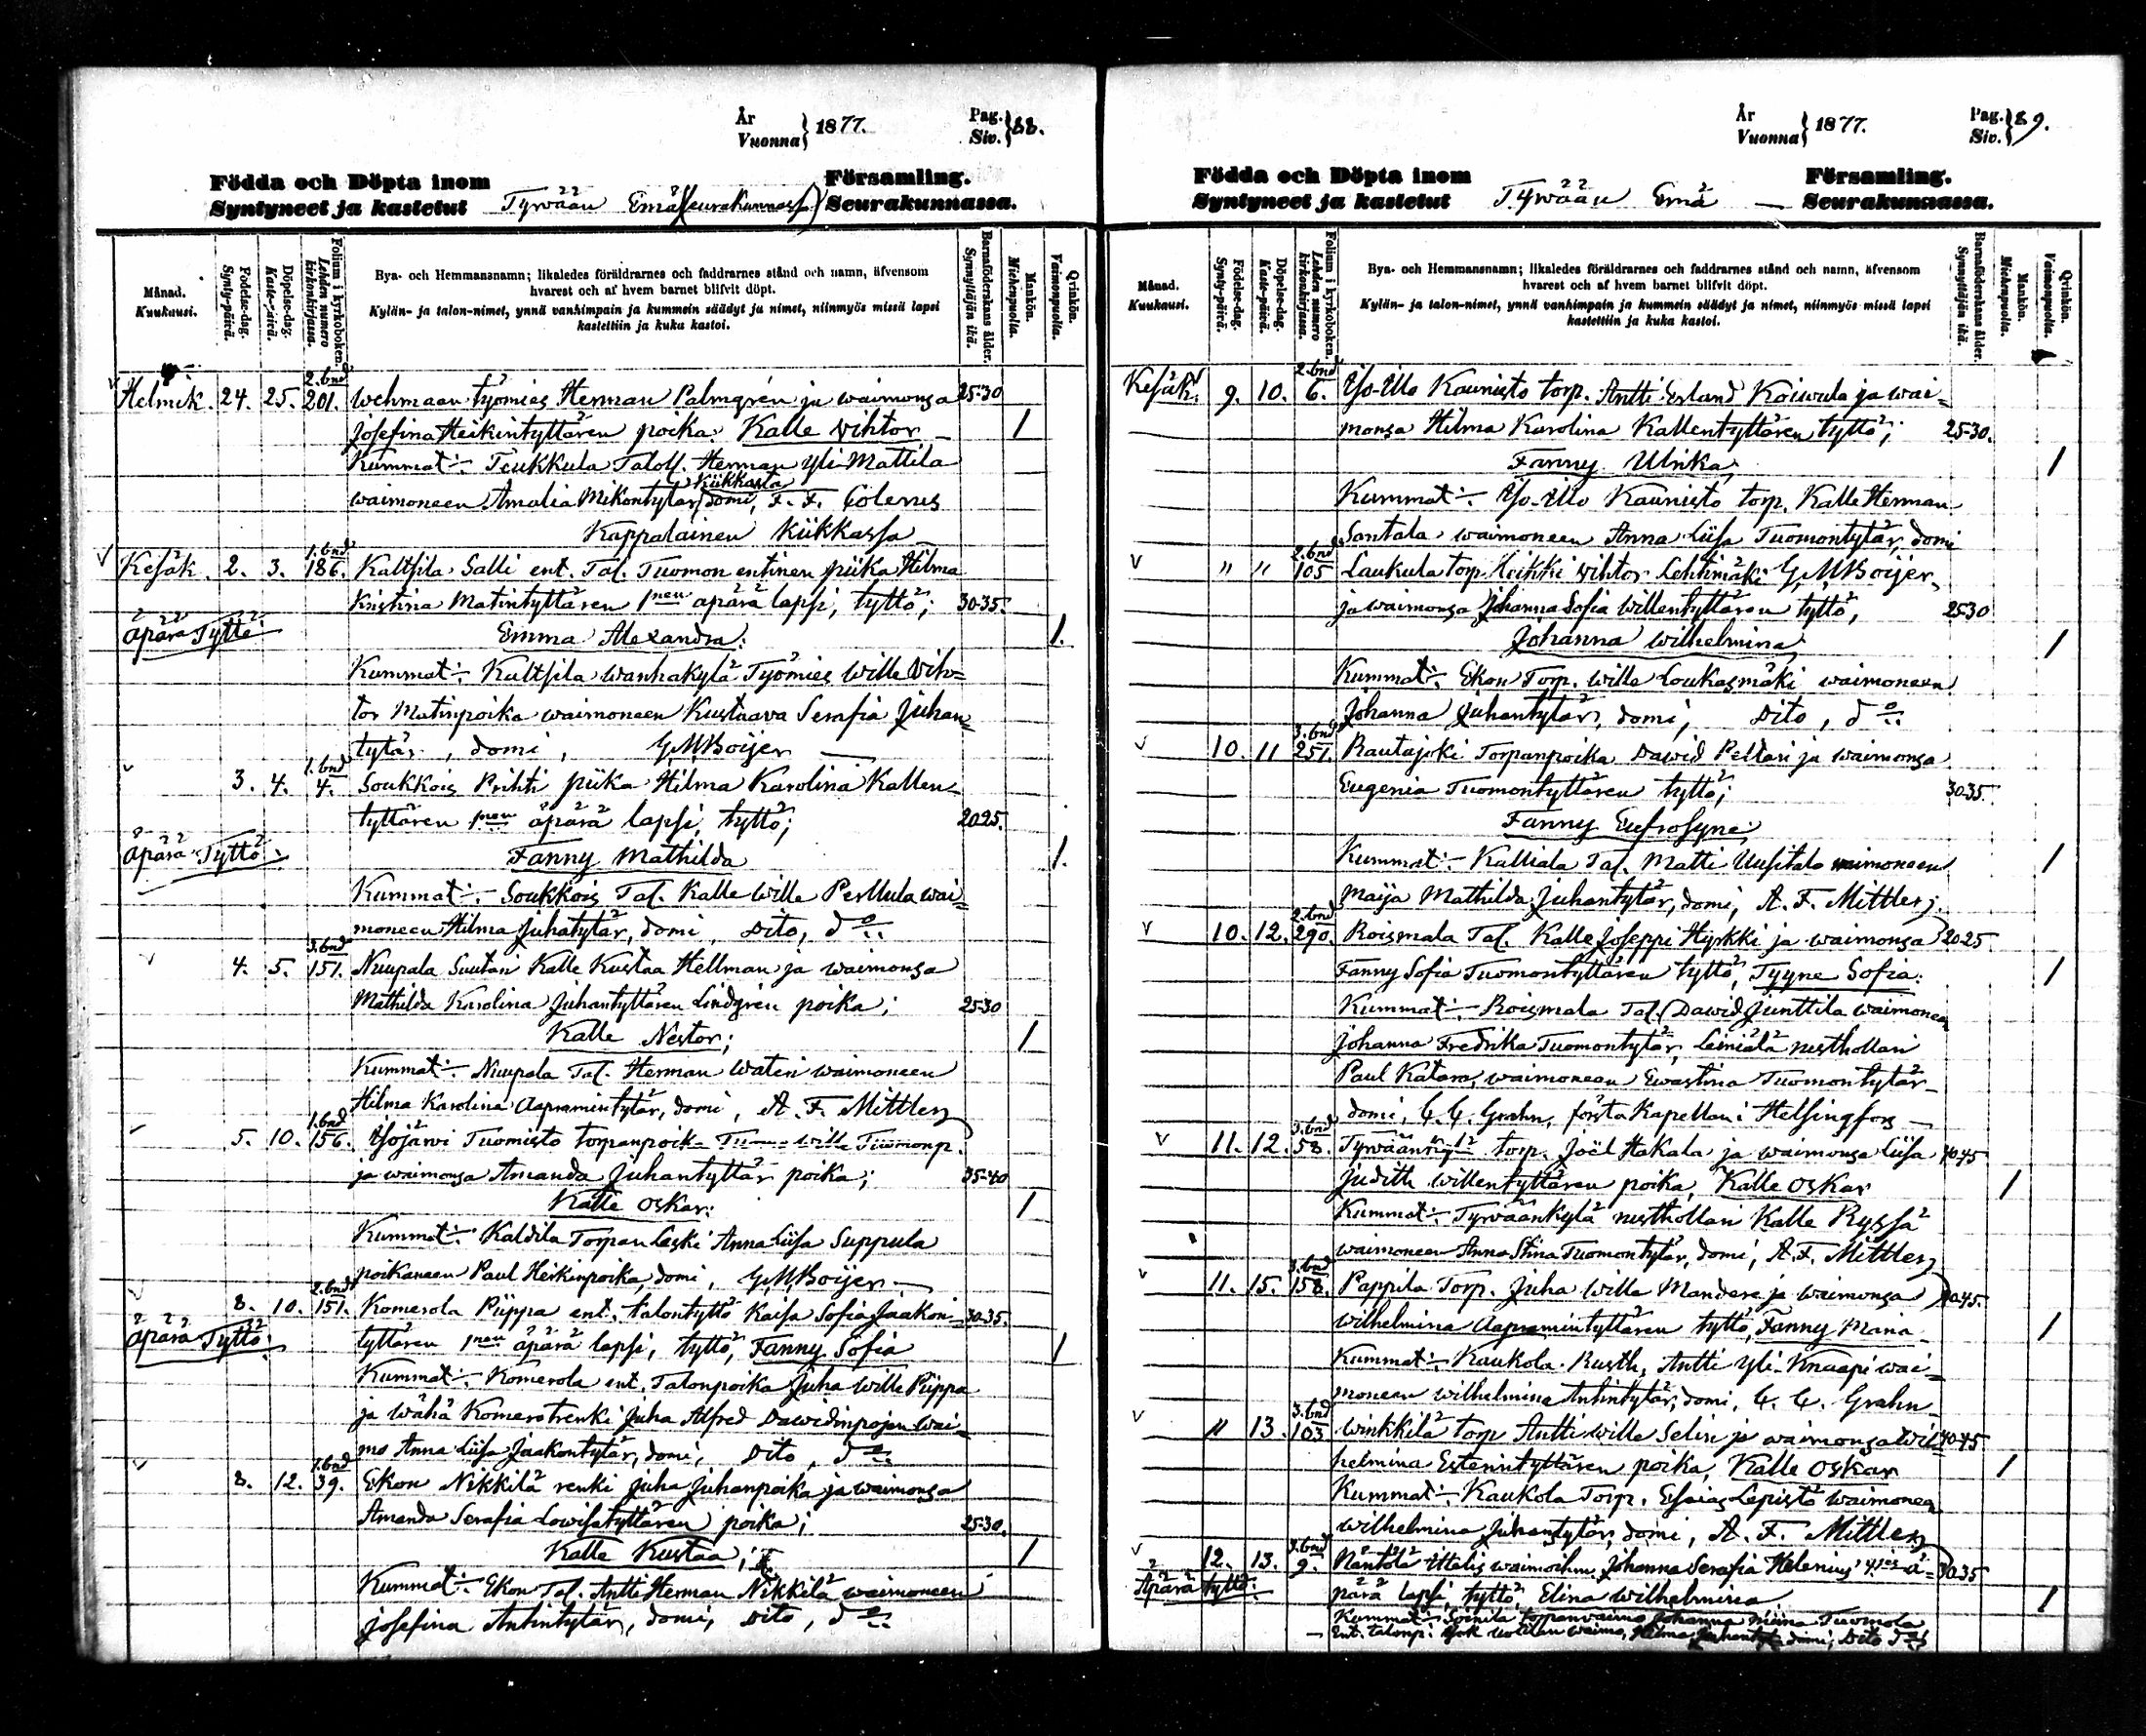 År
Vuonna } 1877.
Pag.
Siv. } 88.
Födda och Döpta inom
Syntyneet ja kastetut Tyrvään Emä (seurakunnassa)
Församling.
Seurakunnassa.
Månad.
Kuukausi.
Födelse-dag.
Synty-päivä.
Döpelse-dag.
Kaste-päivä.
Folium i kyrkoboken.
Lehden numero kirkonkirjassa.
Bya- och Hemmansnamn; likaledes föräldrarnes och faddrarnes stånd och namn, äfvensom
hvarest och af hvem barnet blifvit döpt.
Kylän- ja talon-nimet, ynnä vanhimpain ja kummein säädyt ja nimet, niinmyös missä lapsi
kastettiin ja kuka kastoi.
Barnaföderskans ålder.
Synnyttäjän ikä.
Mankön.
Miehenpuolta.
Qvinkön.
Vaimonpuolta.
Helmik. 24. 25. 2. bnd 201. Wehmaan työmies Herman Palmgrén ja waimonsa 25-30
Josefina Heikintyttären poika: Kalle Wihtor 1
Kummat:- Teukkula Talol. Herman Yli-Mattila
Kiikkasta
waimoneen Amalia Mikontytär, domi, F. F. Colerus
Kappalainen Kiikkassa
Kesäk. 2. 3. 1. bnd 186. Kaltsila Salli ent. Tal. Tuomon entinen piika Hilma
Kristina Matintyttären 1nen äpärä lapsi, tyttö; 30-35.
Äpärä Tyttö Emma Alexandra. 1.
Kummat:- Kaltsila Wanhakylä Työmies Wille Wih=
tor Matinpoika waimoneen Kustaava Serafia Juhan
tytär, domi, G. M. Boijer
3. 4. 1. bnd 4. Soukkois Prihti piika Hilma Karolina Kallen
tyttären 1nen äpärä lapsi, tyttö; 20-25.
Äpärä Tyttö Fanny Mathilda 1.
Kummat:- Soukkois Tal. Kalle Wille Perttula wai=
moneen Hilma Juhatytär, domi, Dito, do
4. 5. 3. bnd 151. Nuupala Suutari Kalle Kustaa Hellman ja waimonsa
Mathilda Karolina Juhantyttären Lindgrén poika; 25-30
Kalle Nestor; 1
Kummat:- Nuupala Tal. Herman Wateri waimoneen
Hilma Karolina Aapramintytär, domi, A. F. Mittler
5. 10. 1. bnd 156. Isojärwi Tuomisto torpanpoik. Wille Tuomonp.
ja waimonsa Amanda Juhantyttär poika; 35-40
Kalle Oskar: 1
Kummat:- Kaldila Torpan Leski Anna Liisa Suppula
poikaneen Paul Heikinpoika, domi, G. M. Boijer
8. 10. 2. bnd 151. Komerola Piippa ent. talontyttö Kaisa Sofia Jaakon= 30-35.
Äpärä Tyttö tyttären 1nen äpärä lapsi, tyttö, Fanny Sofia 1
Kummat:- Komerola ent. Talonpoika Juha Wille Piippa
ja Wähä Komero trenki Juha Alfred Dawidinpojan wai=
mo Anna Liisa Jaakontytär, domi, Dito, do
8. 12. 1. bnd 39. Ekon Nikkilä renki Juha Juhanpoika ja waimonsa
Amanda Serafia Lowisatyttären poika; 25-30.
Kalle Kustaa; 1
Kummat:- Ekon Tal. Antti Herman Nikkilä waimoneen
Josefina Antintytär, domi, Dito, do
År
Vuonna } 1877.
Pag.
Siv. } 89.
Födda och Döpta inom
Syntyneet ja kastetut Tyrwään Emä
Församling.
Seurakunnassa.
Månad.
Kuukausi.
Födelse-dag.
Synty-päivä.
Döpelse-dag.
Kaste-päivä.
Folium i kyrkoboken.
Lehden numero kirkonkirjassa.
Bya- och Hemmansnamn; likaledes föräldrarnes och faddrarnes stånd och namn, äfvensom
hvarest och af hvem barnet blifvit döpt.
Kylän- ja talon-nimet, ynnä vanhimpain ja kummein säädyt ja nimet, niinmyös missä lapsi
kastettiin ja kuka kastoi.
Barnaföderskans ålder.
Synnyttäjän ikä.
Mankön.
Miehenpuolta.
Qvinkön.
Vaimonpuolta.
Kesäk. 9. 10. 2. bnd 6. Iso-Illo Kaunisto torp. Antti Erland Koiwula ja wai=
monsa Hilma Karolina Kallentyttären tyttö; 25-30.
Fanny Ulrika 1
Kummat:- Iso-Illo Kaunisto torp. Kalle Herman
Santala waimoneen Anna Liisa Tuomontytär, domi
" " 2. bnd 105 Laukula torp. Heikki Wihtor Lehtimäki G. M. Boijer
ja waimonsa Johanna Sofia Willentyttären tyttö, 25-30
Johanna Wilhelmina 1
Kummat:- Ekon Torp. Wille Loukasmäki waimoneen
Johanna Juhantytär, domi, Dito, do
10. 11 3. bnd 251. Rautajoki Torpanpoika Dawid Peltari ja waimonsa
Eugenia Tuomontyttären tyttö; 30-35.
Fanny Eufrosyne
Kummat:- Kalliala Tal. Matti Uusitalo waimoneen 1
Maija Mathilda Juhantytär, domi, A. F. Mittler
10. 12. 2. bnd 290. Roismala Tal. Kalle Joseppi Hyrkki ja waimonsa 20-25
Fanny Sofia Tuomontyttären tyttö, Tyyne Sofia: 1
Kummat:- Roismala Tal. Dawid Junttila waimoneen
Johanna Fredrika Tuomontytär, Leiniälä rusthollari
Paul Katara, waimoneen Ewastina Tuomontytär
domi, C. C. Grahn, första Kapellan i Helsingfors
11. 12. 3. bnd 58. Tyrwäänkylä torp. Joël Hakala ja waimonsa Liisa 40-45
Judith Willentyttären poika, Kalle Oskar 1
Kummat:- Tyrwäänkylä rusthollari Kalle Ryssä
waimoneen Anna Stina Tuomontytär, domi, A. F. Mittler
11. 15. 3. bnd 158. Pappila Torp. Juha Wille Mandere ja waimonsa 40-45.
Wilhelmina Aapramintyttären tyttö, Fanny Maria 1
Kummat:- Kaukola Rusth. Antti Yli-Knaapi wai=
moneen Wilhelmina Antintytär, domi, C. C. Grahn
" 13. 3. bnd 103 Winkkilä torp Antti Wille Selin ja waimonsa Wil= 40-45
helmina Esterintyttären poika, Kalle Oskar 1
Kummat:- Kaukola Torp. Esaias Lepistö waimoneen
Wilhelmina Juhantytär, domi, A. F. Mittler
12. 13. 3. bnd 9. Nantola waimoihm. Johanna Serafia Helenius ä= 30-35
Äpärä tyttö: pärä lapsi, tyttö, Elina Wilhelmina 1
Kummat:- Soinila torpanwaimo Johanna Tuomola
Ent. talonp. waimo, Hilma domi, Dito do